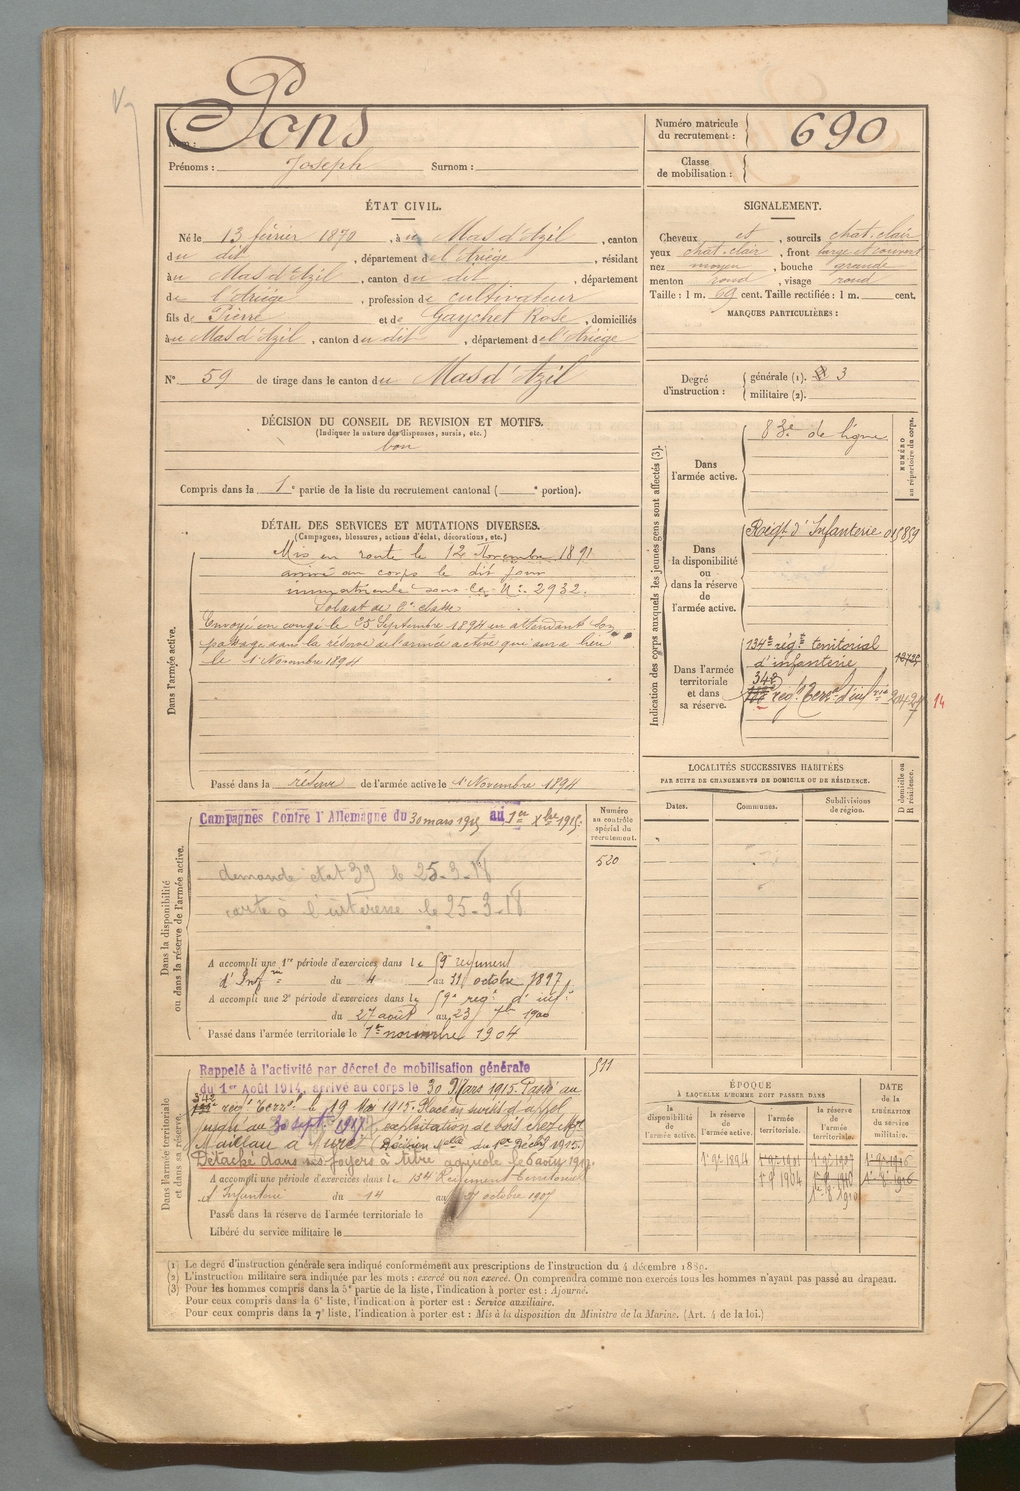 Pons
Nom :
Prénoms : Joseph Surnom :
Numéro matricule du recrutement : 690
Classe de mobilisation :
ÉTAT CIVIL.
Né le 13 février 1870, à Mas d'Azil, canton
du dit, département de l'Ariège, résidant
à Mas d'Azil, canton du dit, département
de l'Ariège, profession de cultivateur
fils de Pierre et de Gaychet Rose, domiciliés
à Mas d'Azil, canton du dit, département de l'Ariège
N° 59 de tirage dans le canton du Mas d'Azil
SIGNALEMENT.
Cheveux et, sourcils chat. clair
yeux chat. clair, front large et ouvert
nez moyen, bouche grande
menton rond, visage rond
Taille : 1 m. 69 cent. Taille rectifiée : 1 m. cent.
MARQUES PARTICULIÈRES :
Degré d'instruction : générale (1). 3
militaire (2).
DÉCISION DU CONSEIL DE REVISION ET MOTIFS.
(Indiquer la nature des dispenses, sursis, etc.)
bon
Compris dans la 1e partie de la liste du recrutement cantonal ( e portion).
DÉTAIL DES SERVICES ET MUTATIONS DIVERSES.
(Campagnes, blessures, actions d'éclat, décorations, etc.)
Dans l'armée active.
Mis en route le 12 Novembre 1891
arrivé au corps le dit jour
immatriculé sous le N° 2932.
Soldat de 2e classe
Envoyé en congé le 25 Septembre 1894 en attendant son
passage dans la réserve de l'armée active qui aura lieu
le 1 Novembre 1894
Passé dans la réserve de l'armée active le 1 Novembre 1894
Indication des corps auxquels les jeunes gens sont affectés (3).
NUMÉRO au répertoire du corps.
Dans l'armée active.
83e de ligne
Dans la disponibilité ou dans la réserve de l'armée active.
Regt d'Infanterie 015859
Dans l'armée territoriale et dans sa réserve.
134e régt territorial
d'infanterie
342
regt Terr d'inf
14
LOCALITÉS SUCCESSIVES HABITÉES
PAR SUITE DE CHANGEMENTS DE DOMICILE OU DE RÉSIDENCE.
Dates. Communes. Subdivisions de région. D domicile ou R résidence.
Dans la disponibilité ou dans la réserve de l'armée active.
Numéro au contrôle spécial du recrutement.
520
Campagnes Contre l'Allemagne du 30 mars 1915 au 1er Xbre 1915.
demande etat 39 le 25-3-18
carte à l'intéressé le 25-3-18
A accompli une 1re période d'exercices dans le 59e regiment
d'Inf du 4 au 31 octobre 1897
A accompli une 2e période d'exercices dans le 59e reg. d'inf.
du 27 août au 23 7bre 1900
Passé dans l'armée territoriale le 1er novembre 1904
Dans l'armée territoriale et dans sa réserve.
511
Rappelé à l'activité par décret de mobilisation générale
du 1er Août 1914, arrivé au corps le 30 Mars 1915. Passé au
342 regt Terr le 19 Mai 1915. Placé en sursis d'appel
jusqu'au 30 sept 1917, exploitation de bois chez Mr
Maillau à (Décision Melle du 1er Décbre 1915.
Détaché dans ses foyers à titre agricole le
A accompli une période d'exercices dans le 134 Régiment territorial
d'Infanterie du 14 au octobre 1907
Passé dans la réserve de l'armée territoriale le
Libéré du service militaire le
ÉPOQUE
A LAQUELLE L'HOMME DOIT PASSER DANS
la disponibilité de l'armée active. la réserve de l'armée active. l'armée territoriale. la réserve de l'armée territoriale.
DATE de la LIBÉRATION du service militaire.
(1) Le degré d'instruction générale sera indiqué conformément aux prescriptions de l'instruction du 4 décembre 1889.
(2) L'instruction militaire sera indiquée par les mots : exercé ou non exercé. On comprendra comme non exercés tous les hommes n'ayant pas passé au drapeau.
(3) Pour les hommes compris dans la 5e partie de la liste, l'indication à porter est : Ajourné.
Pour ceux compris dans la 6e liste, l'indication à porter est : Service auxiliaire.
Pour ceux compris dans la 7e liste, l'indication à porter est : Mis à la disposition du Ministre de la Marine. (Art. 4 de la loi.)